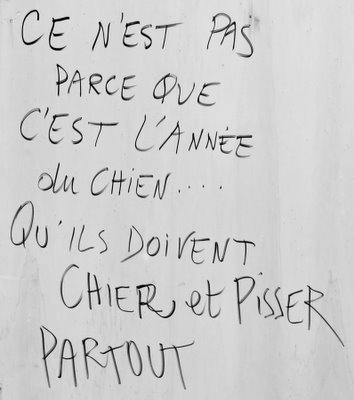 CE N'EST PAS
PARCE QUE
C'EST L'ANNÉE
du CHIEN....
QU'ILS DOIVENT
CHIER et PISSER
PARTOUT